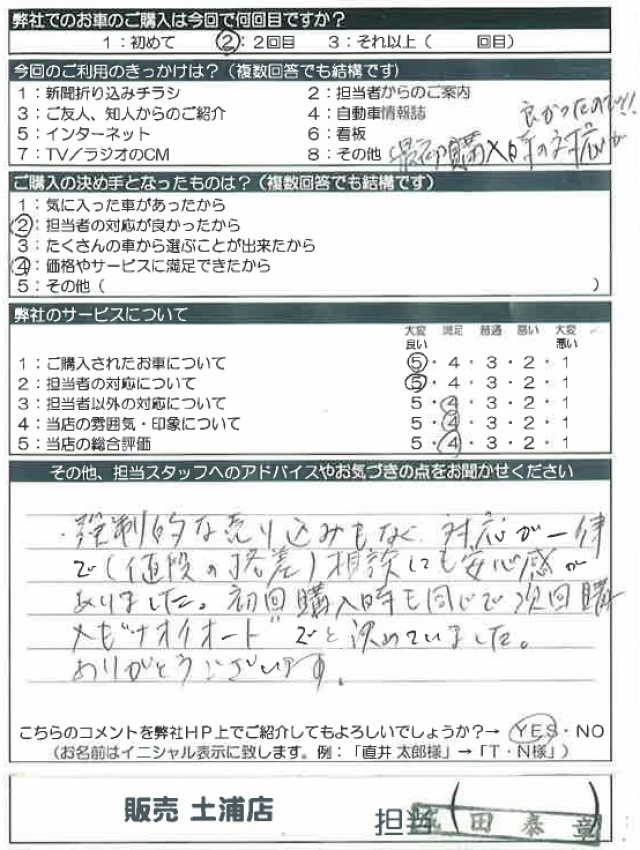 弊社でのお車のご購入は今回で何回目ですか？
1：初めて　②：2回目　3：それ以上（　　回目）
今回のご利用のきっかけは？（複数回答でも結構です）
1：新聞折り込みチラシ　2：担当者からのご案内
3：ご友人、知人からのご紹介　4：自動車情報誌
5：インターネット　6：看板
7：TV／ラジオのCM　8：その他　最初購入時の対応が
良かったので!!
ご購入の決め手となったものは？（複数回答でも結構です）
1：気に入った車があったから
②：担当者の対応が良かったから
3：たくさんの車から選ぶことが出来たから
④：価格やサービスに満足できたから
5：その他（　　　）
弊社のサービスについて
大変良い　満足　普通　悪い　大変悪い
1：ご購入されたお車について　⑤・4・3・2・1
2：担当者の対応について　⑤・4・3・2・1
3：担当者以外の対応について　5・④・3・2・1
4：当店の雰囲気・印象について　5・④・3・2・1
5：当店の総合評価　5・④・3・2・1
その他、担当スタッフへのアドバイスやお気づきの点をお聞かせください
・強制的な売り込みもなく、対応が一律
で（値段の格差）相談しても安心感が
ありました。初回購入時も同じで次回購
入も"ナオイオート"でと決めていました。
ありがとうございます。
こちらのコメントを弊社HP上でご紹介してもよろしいでしょうか？→ YES・NO
（お名前はイニシャル表示に致します。例：「直井 太郎様」→「T・N様」）
販売 土浦店
担当（　田 泰 章